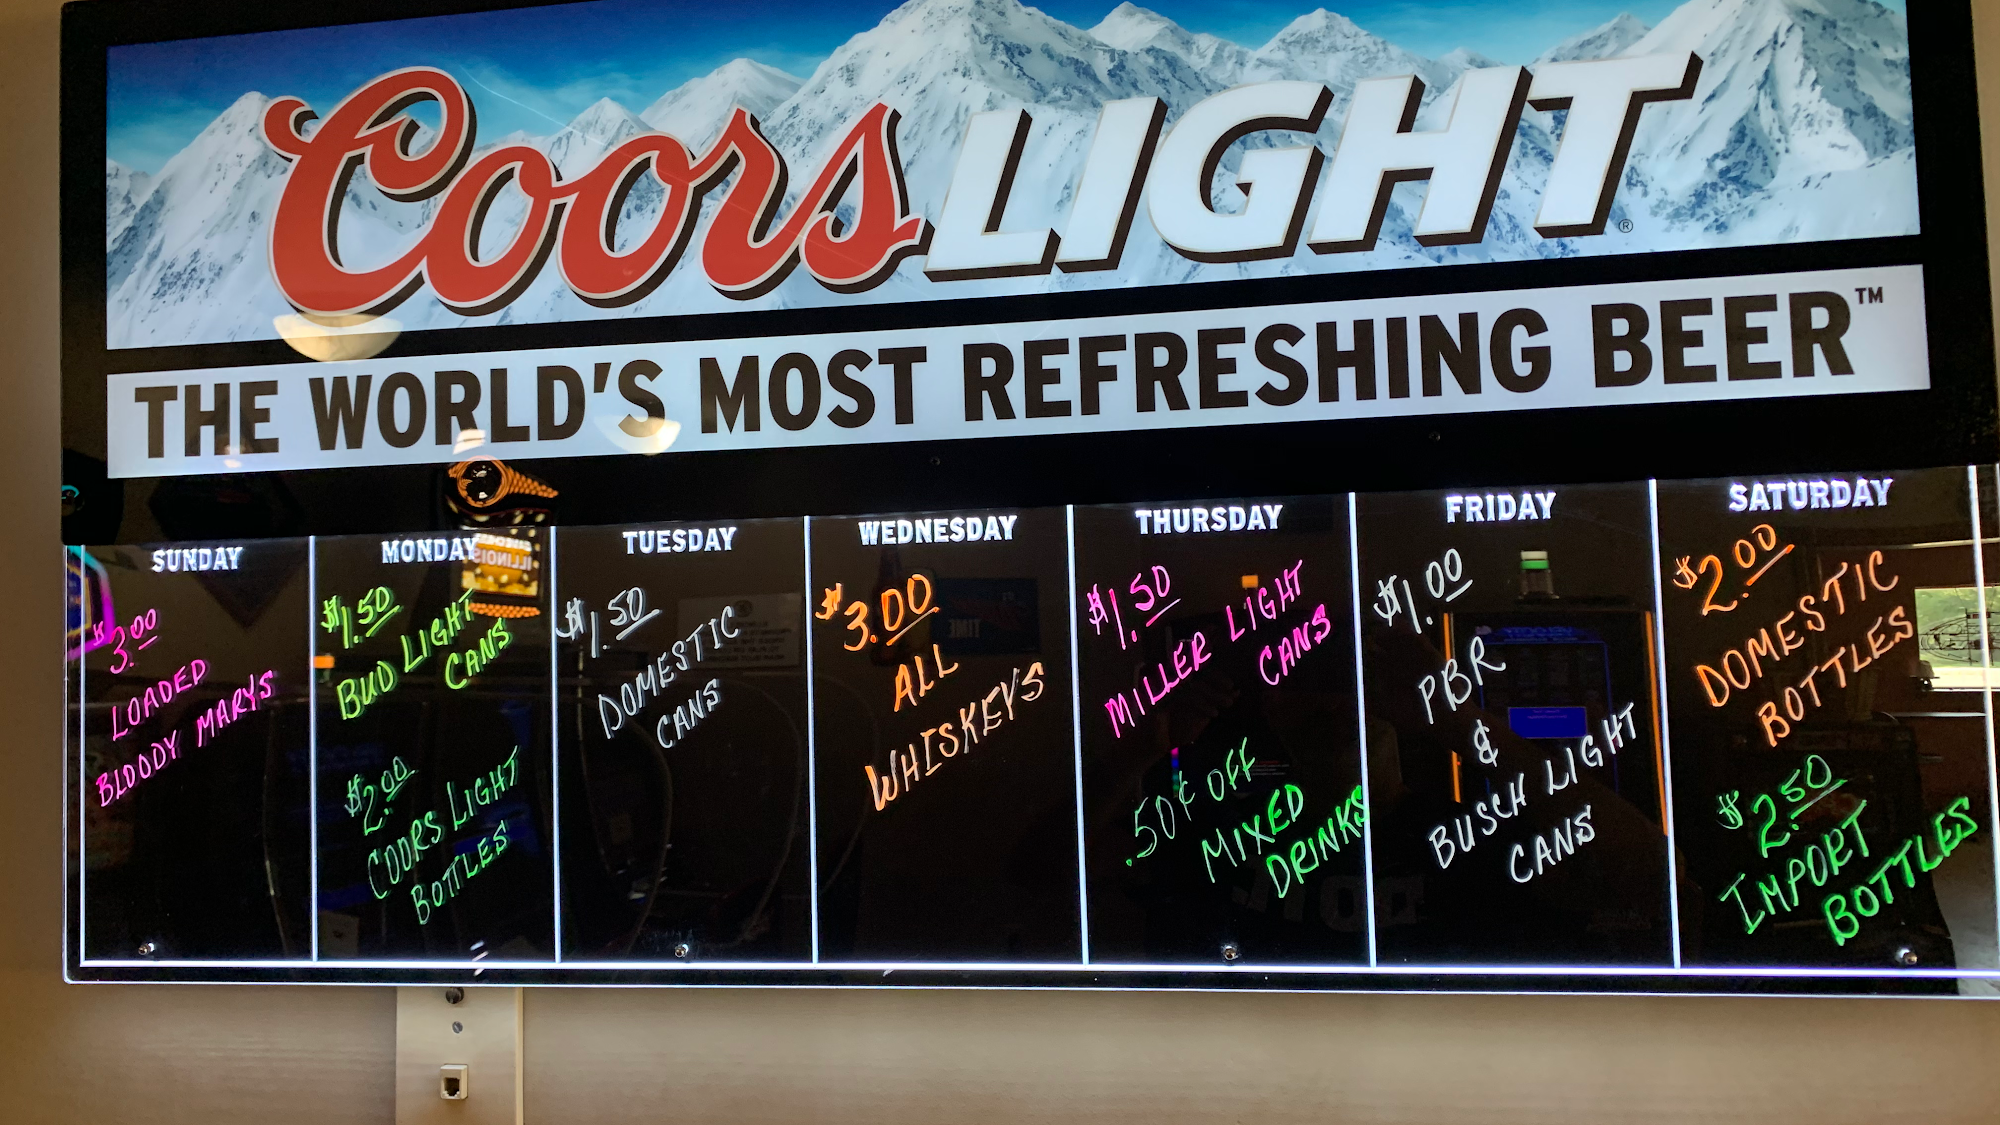 Coors LIGHT
®
THE WORLD'S MOST REFRESHING BEER™
SUNDAY
$3.00
LOADED
BLOODY MARYS
MONDAY
$1.50
BUD LIGHT
CANS
$2.00
COORS LIGHT
BOTTLES
TUESDAY
$1.50
DOMESTIC
CANS
WEDNESDAY
$3.00
ALL
WHISKEYS
THURSDAY
$1.50
MILLER LIGHT
CANS
.50¢ OFF
MIXED
DRINKS
FRIDAY
$1.00
PBR
&
BUSCH LIGHT
CANS
SATURDAY
$2.00
DOMESTIC
BOTTLES
$2.50
IMPORT
BOTTLES
ILLINOIS